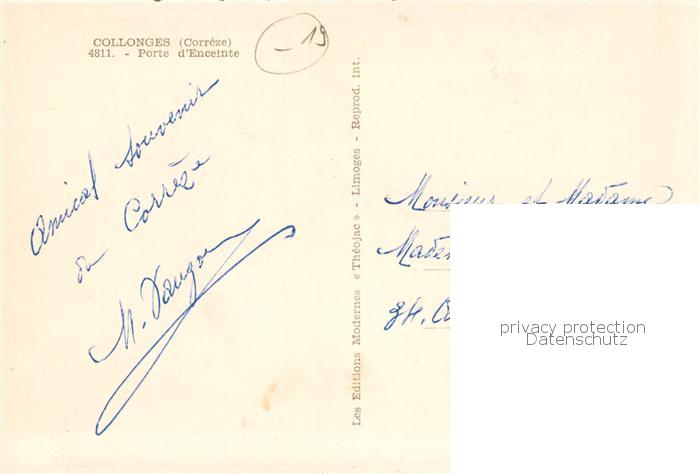 COLLONGES (Corrèze)
4811. - Porte d'Enceinte
-19
Amical Souvenir
de Corrèze
Les Editions Modernes « Théojac » - Limoges - Reprod. int.
Monsieur et Madame
privacy protection
Datenschutz